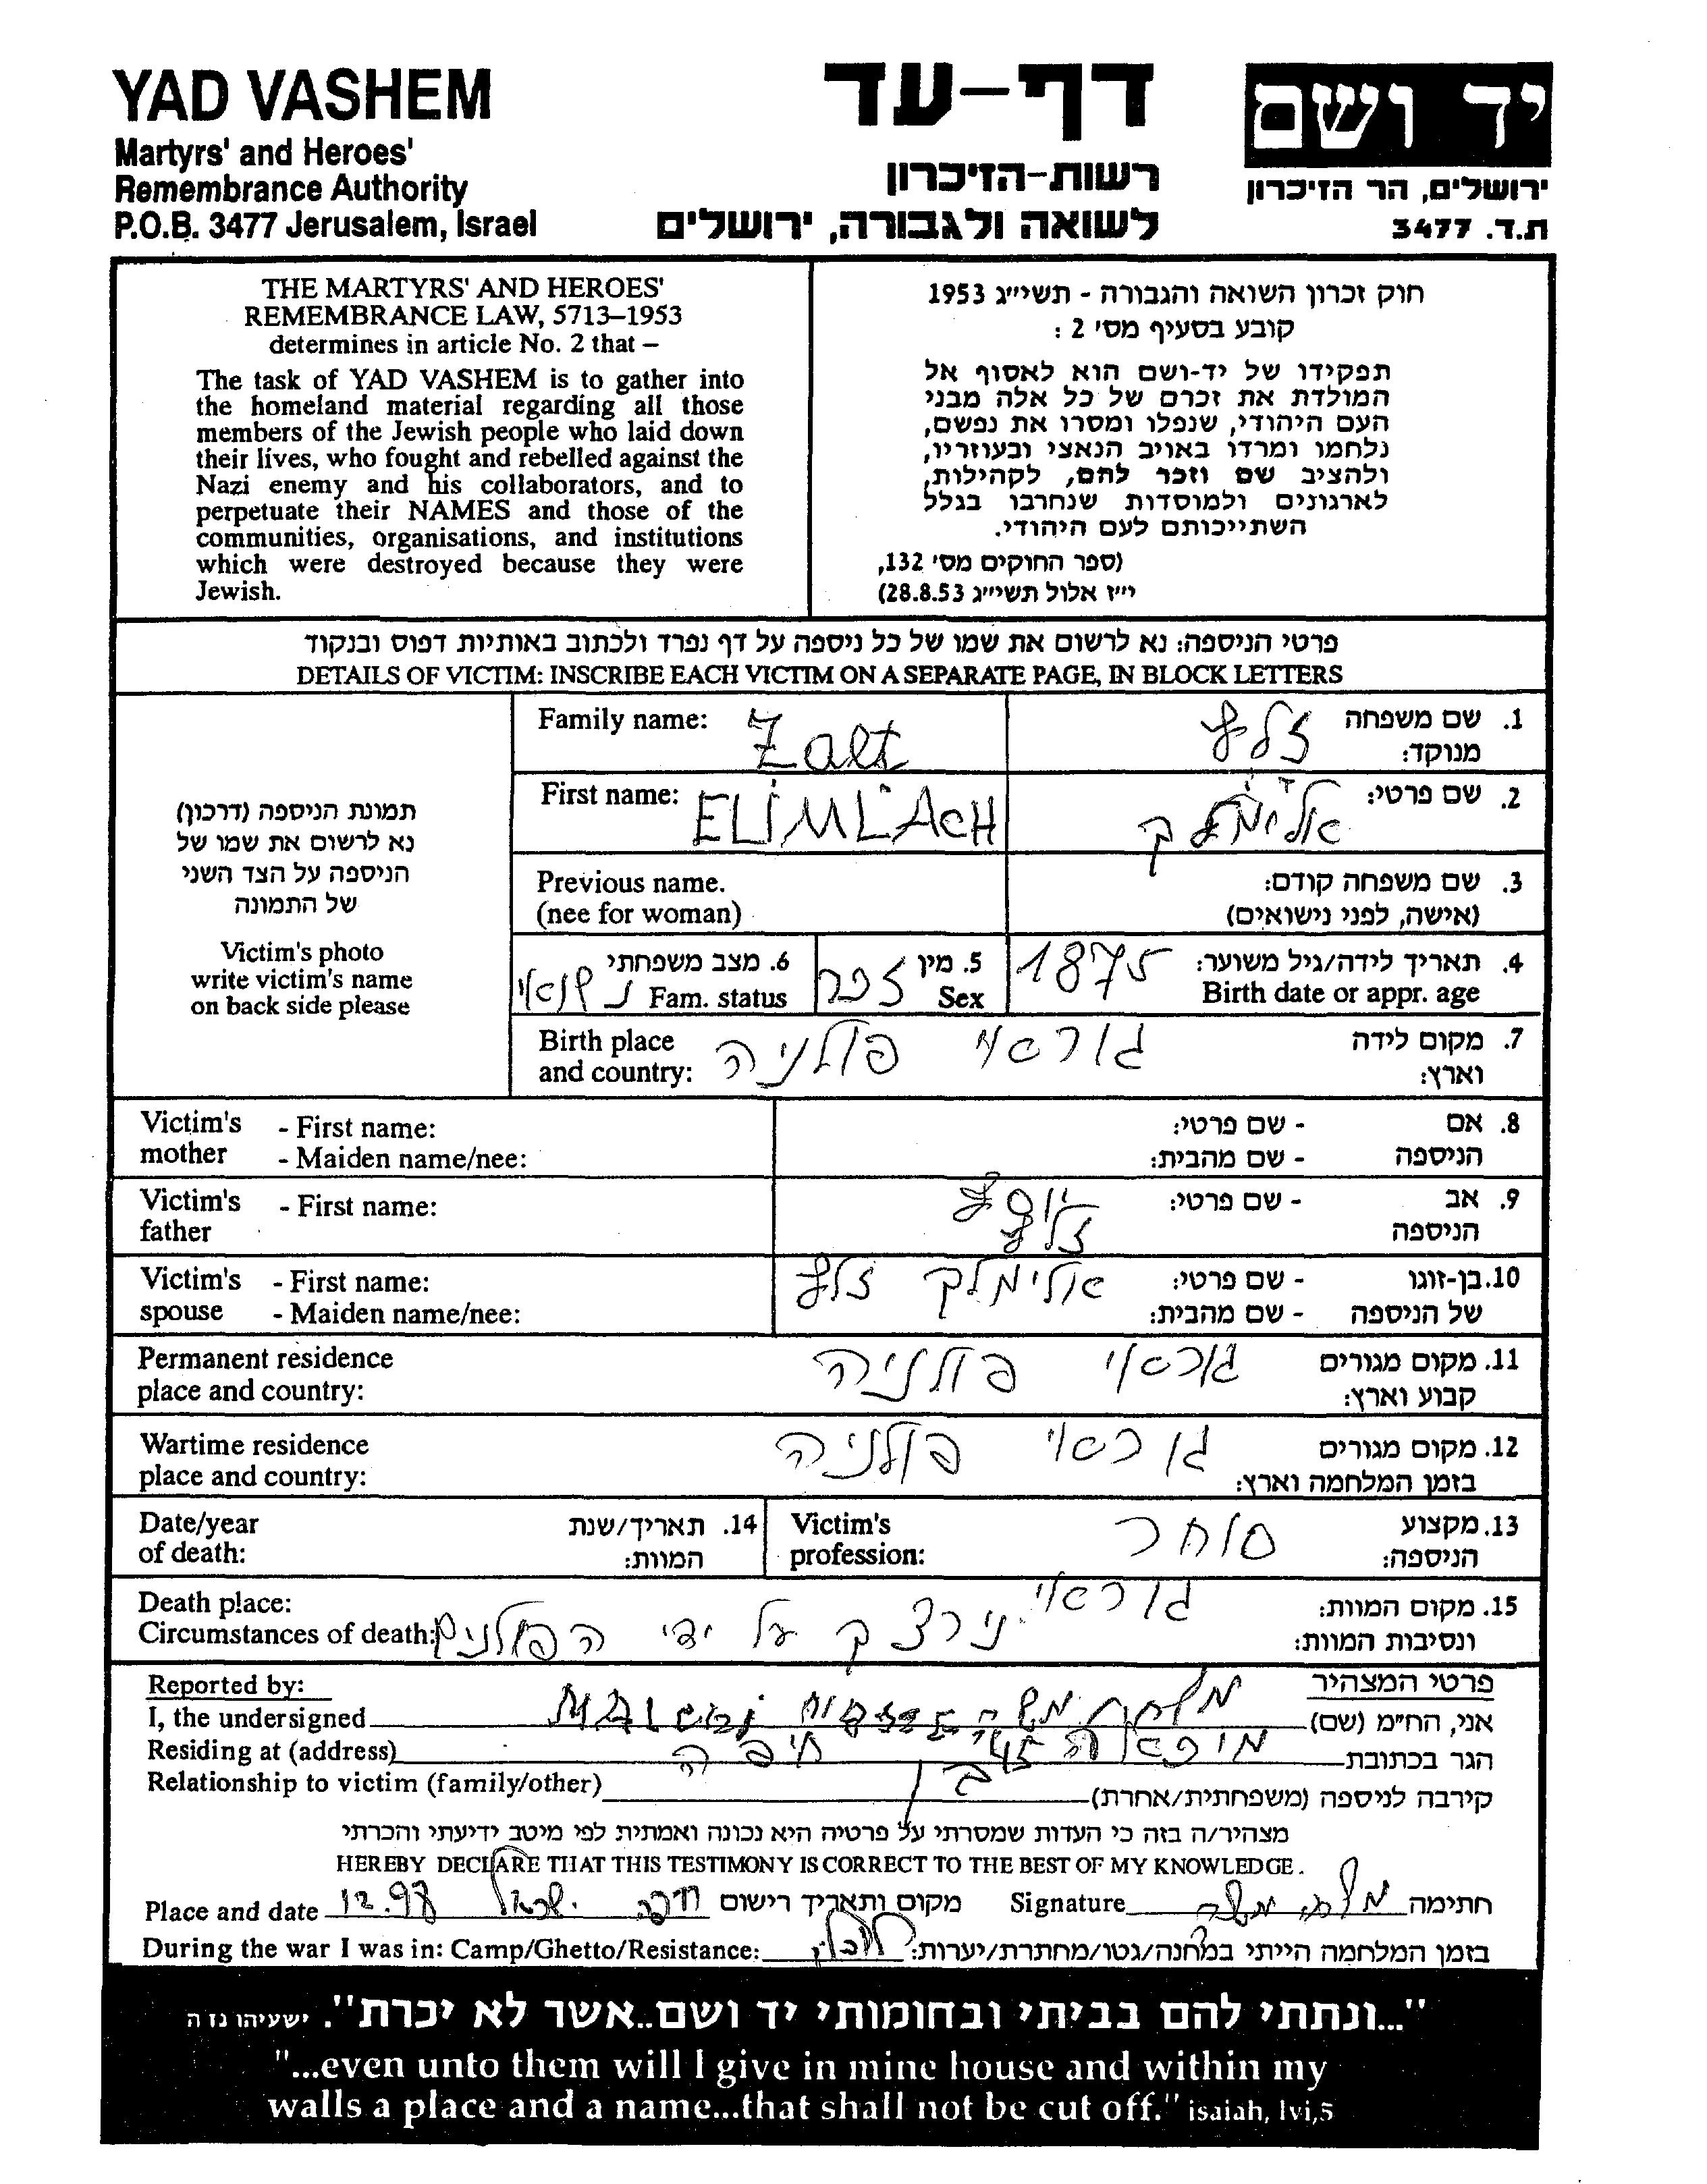 YAD VASHEM
Martyrs' and Heroes'
Remembrance Authority
P.O.B. 3477 Jerusalem, Israel
דף-עד
רשות-הזיכרון
לשואה ולגבורה, ירושלים
יד ושם
ירושלים, הר הזיכרון
ת.ד. 3477
THE MARTYRS' AND HEROES'
REMEMBRANCE LAW, 5713–1953
determines in article No. 2 that –
The task of YAD VASHEM is to gather into
the homeland material regarding all those
members of the Jewish people who laid down
their lives, who fought and rebelled against the
Nazi enemy and his collaborators, and to
perpetuate their NAMES and those of the
communities, organisations, and institutions
which were destroyed because they were
Jewish.
חוק זכרון השואה והגבורה - תשי״ג 1953
קובע בסעיף מס׳ 2 :
תפקידו של יד-ושם הוא לאסוף אל
המולדת את זכרם של כל אלה מבני
העם היהודי, שנפלו ומסרו את נפשם,
נלחמו ומרדו באויב הנאצי ובעוזריו,
ולהציב שם וזכר להם, לקהילות,
לארגונים ולמוסדות שנחרבו בגלל
השתייכותם לעם היהודי.
(ספר החוקים מס׳ 132,
י״ז אלול תשי״ג 28.8.53)
פרטי הניספה: נא לרשום את שמו של כל ניספה על דף נפרד ולכתוב באותיות דפוס ובנקוד
DETAILS OF VICTIM: INSCRIBE EACH VICTIM ON A SEPARATE PAGE, IN BLOCK LETTERS
תמונת הניספה (דרכון)
נא לרשום את שמו של
הניספה על הצד השני
של התמונה
Victim's photo
write victim's name
on back side please
Family name: Zalt זלץ 1. שם משפחה
מנוקד:
First name: ELIMLACH אלימלך 2. שם פרטי:
Previous name. 3. שם משפחה קודם:
(nee for woman) (אישה, לפני נישואים)
4. תאריך לידה/גיל משוער: 1875
Birth date or appr. age
5. מין זכר
Sex
6. מצב משפחתי נשואי
Fam. status
Birth place גוראי פולניה 7. מקום לידה
and country: וארץ:
Victim's - First name: - שם פרטי: 8. אם
mother - Maiden name/nee: - שם מהבית: הניספה
Victim's - First name: יוסף - שם פרטי: 9. אב
father זלץ הניספה
Victim's - First name: אלימלך זלץ - שם פרטי: 10. בן-זוגו
spouse - Maiden name/nee: - שם מהבית: של הניספה
Permanent residence גוראי פולניה 11. מקום מגורים
place and country: קבוע וארץ:
Wartime residence גוראי פולניה 12. מקום מגורים
place and country: בזמן המלחמה וארץ:
Date/year 14. תאריך/שנת
of death: המוות:
Victim's סוחר 13. מקצוע
profession: הניספה:
Death place: גוראי 15. מקום המוות:
Circumstances of death: נירצך על ידי הפולנים ונסיבות המוות:
Reported by: פרטי המצהיר
I, the undersigned משה אני, הח״מ (שם)
Residing at (address) חיפה הגר בכתובת
Relationship to victim (family/other) בן קירבה לניספה (משפחתית/אחרת)
מצהיר/ה בזה כי העדות שמסרתי על פרטיה היא נכונה ואמתית לפי מיטב ידיעתי והכרתי
HEREBY DECLARE THAT THIS TESTIMONY IS CORRECT TO THE BEST OF MY KNOWLEDGE.
Place and date 12.98 ישראל חיפה מקום ותאריך רישום Signature משה חתימה
During the war I was in: Camp/Ghetto/Resistance: בזמן המלחמה הייתי במחנה/גטו/מחתרת/יערות:
"...ונתתי להם בביתי ובחומותי יד ושם..אשר לא יכרת". ישעיהו נז ה
"...even unto them will I give in mine house and within my
walls a place and a name...that shall not be cut off." isaiah, lvi,5